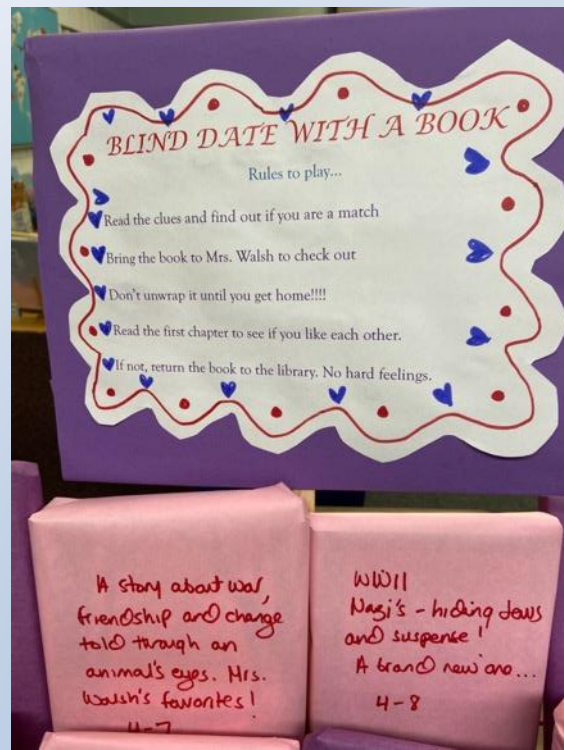 BLIND DATE WITH A BOOK
Rules to play...
Read the clues and find out if you are a match
Bring the book to Mrs. Walsh to check out
Don't unwrap it until you get home!!!!
Read the first chapter to see if you like each other.
If not, return the book to the library. No hard feelings.
A story about war,
friendship and change
told through an
animal's eyes. Mrs.
Walsh's favorites!
4-7
WWII
Nazi's - hiding Jews
and suspense!
A brand new one...
4-8